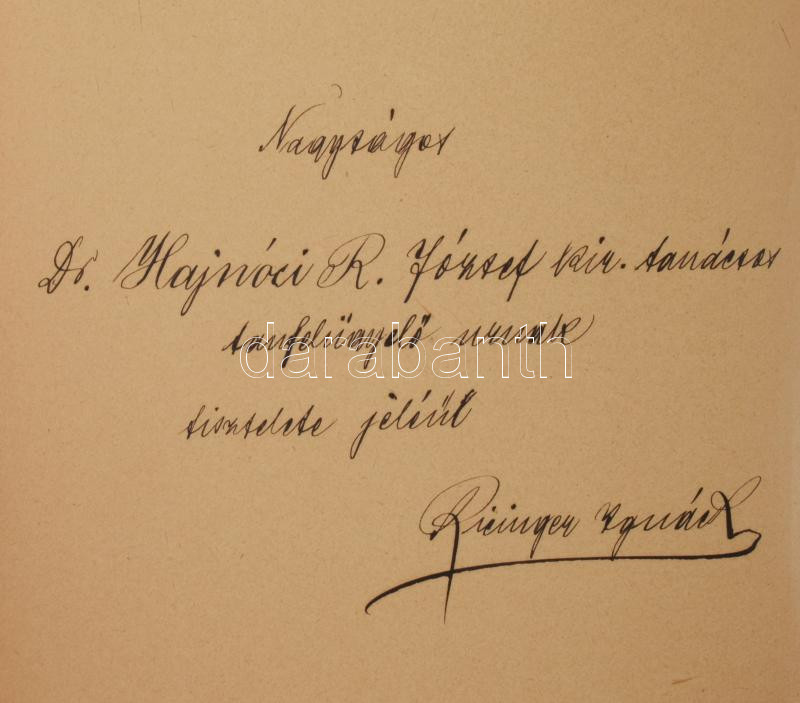 Nagyságos
Dr. Hajnóci R. József kir. tanácsos
tanfelügyelő urnak
darabanth
tisztelete jeléül
Ignác